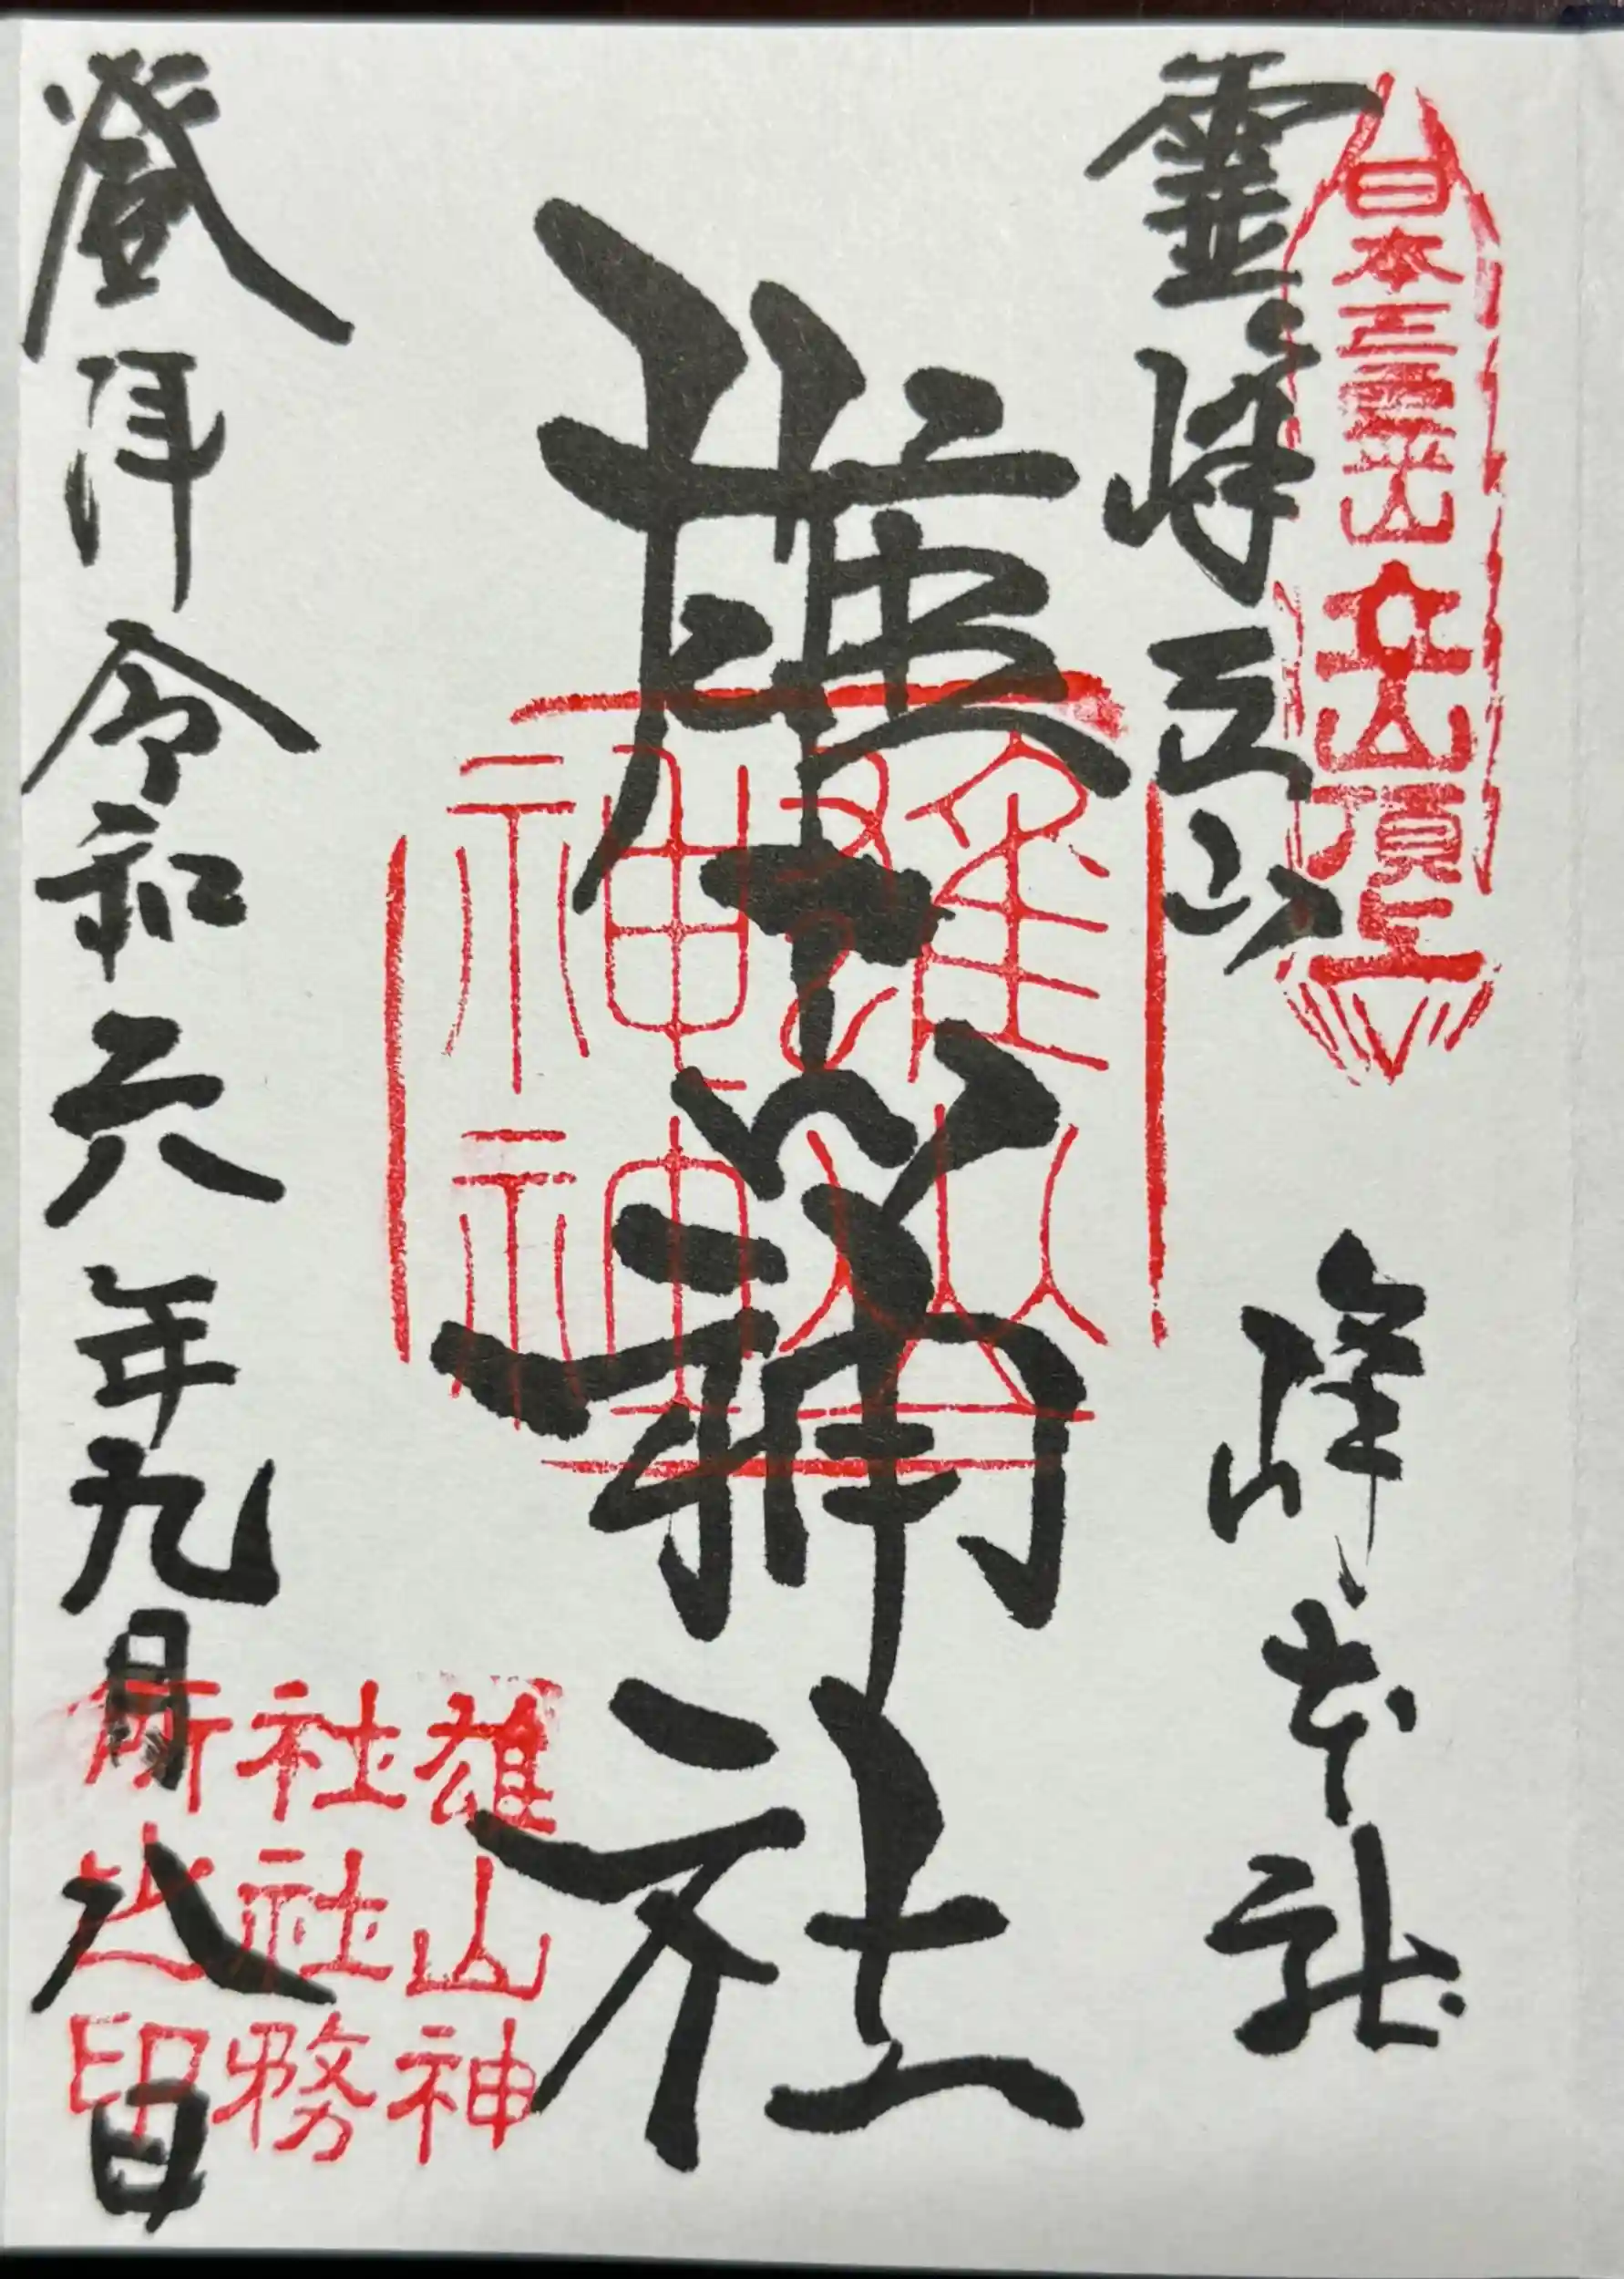 日本三霊山立山頂上
霊峰立山
峰本社
雄山神社
雄山神神
登拝令和六年九月八日
雄山神
社社務
所之印